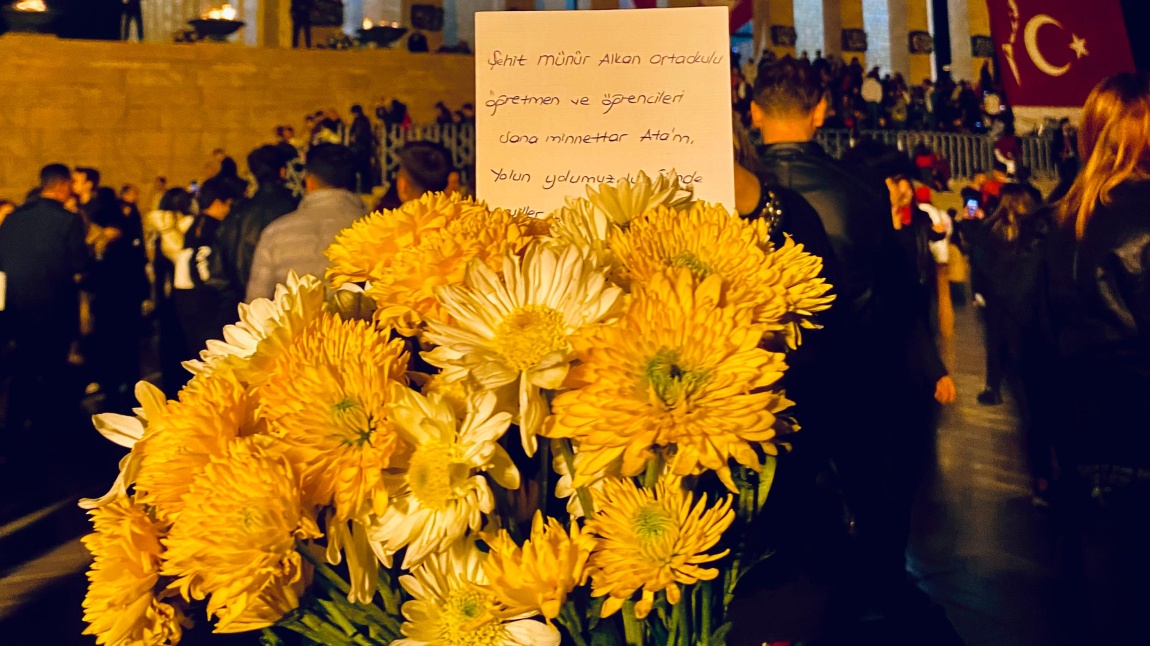 Şehit münür Alkan ortaokulu
öğretmen ve öğrencileri
sana minnettar Ata'm,
Yolun yolumuzdur